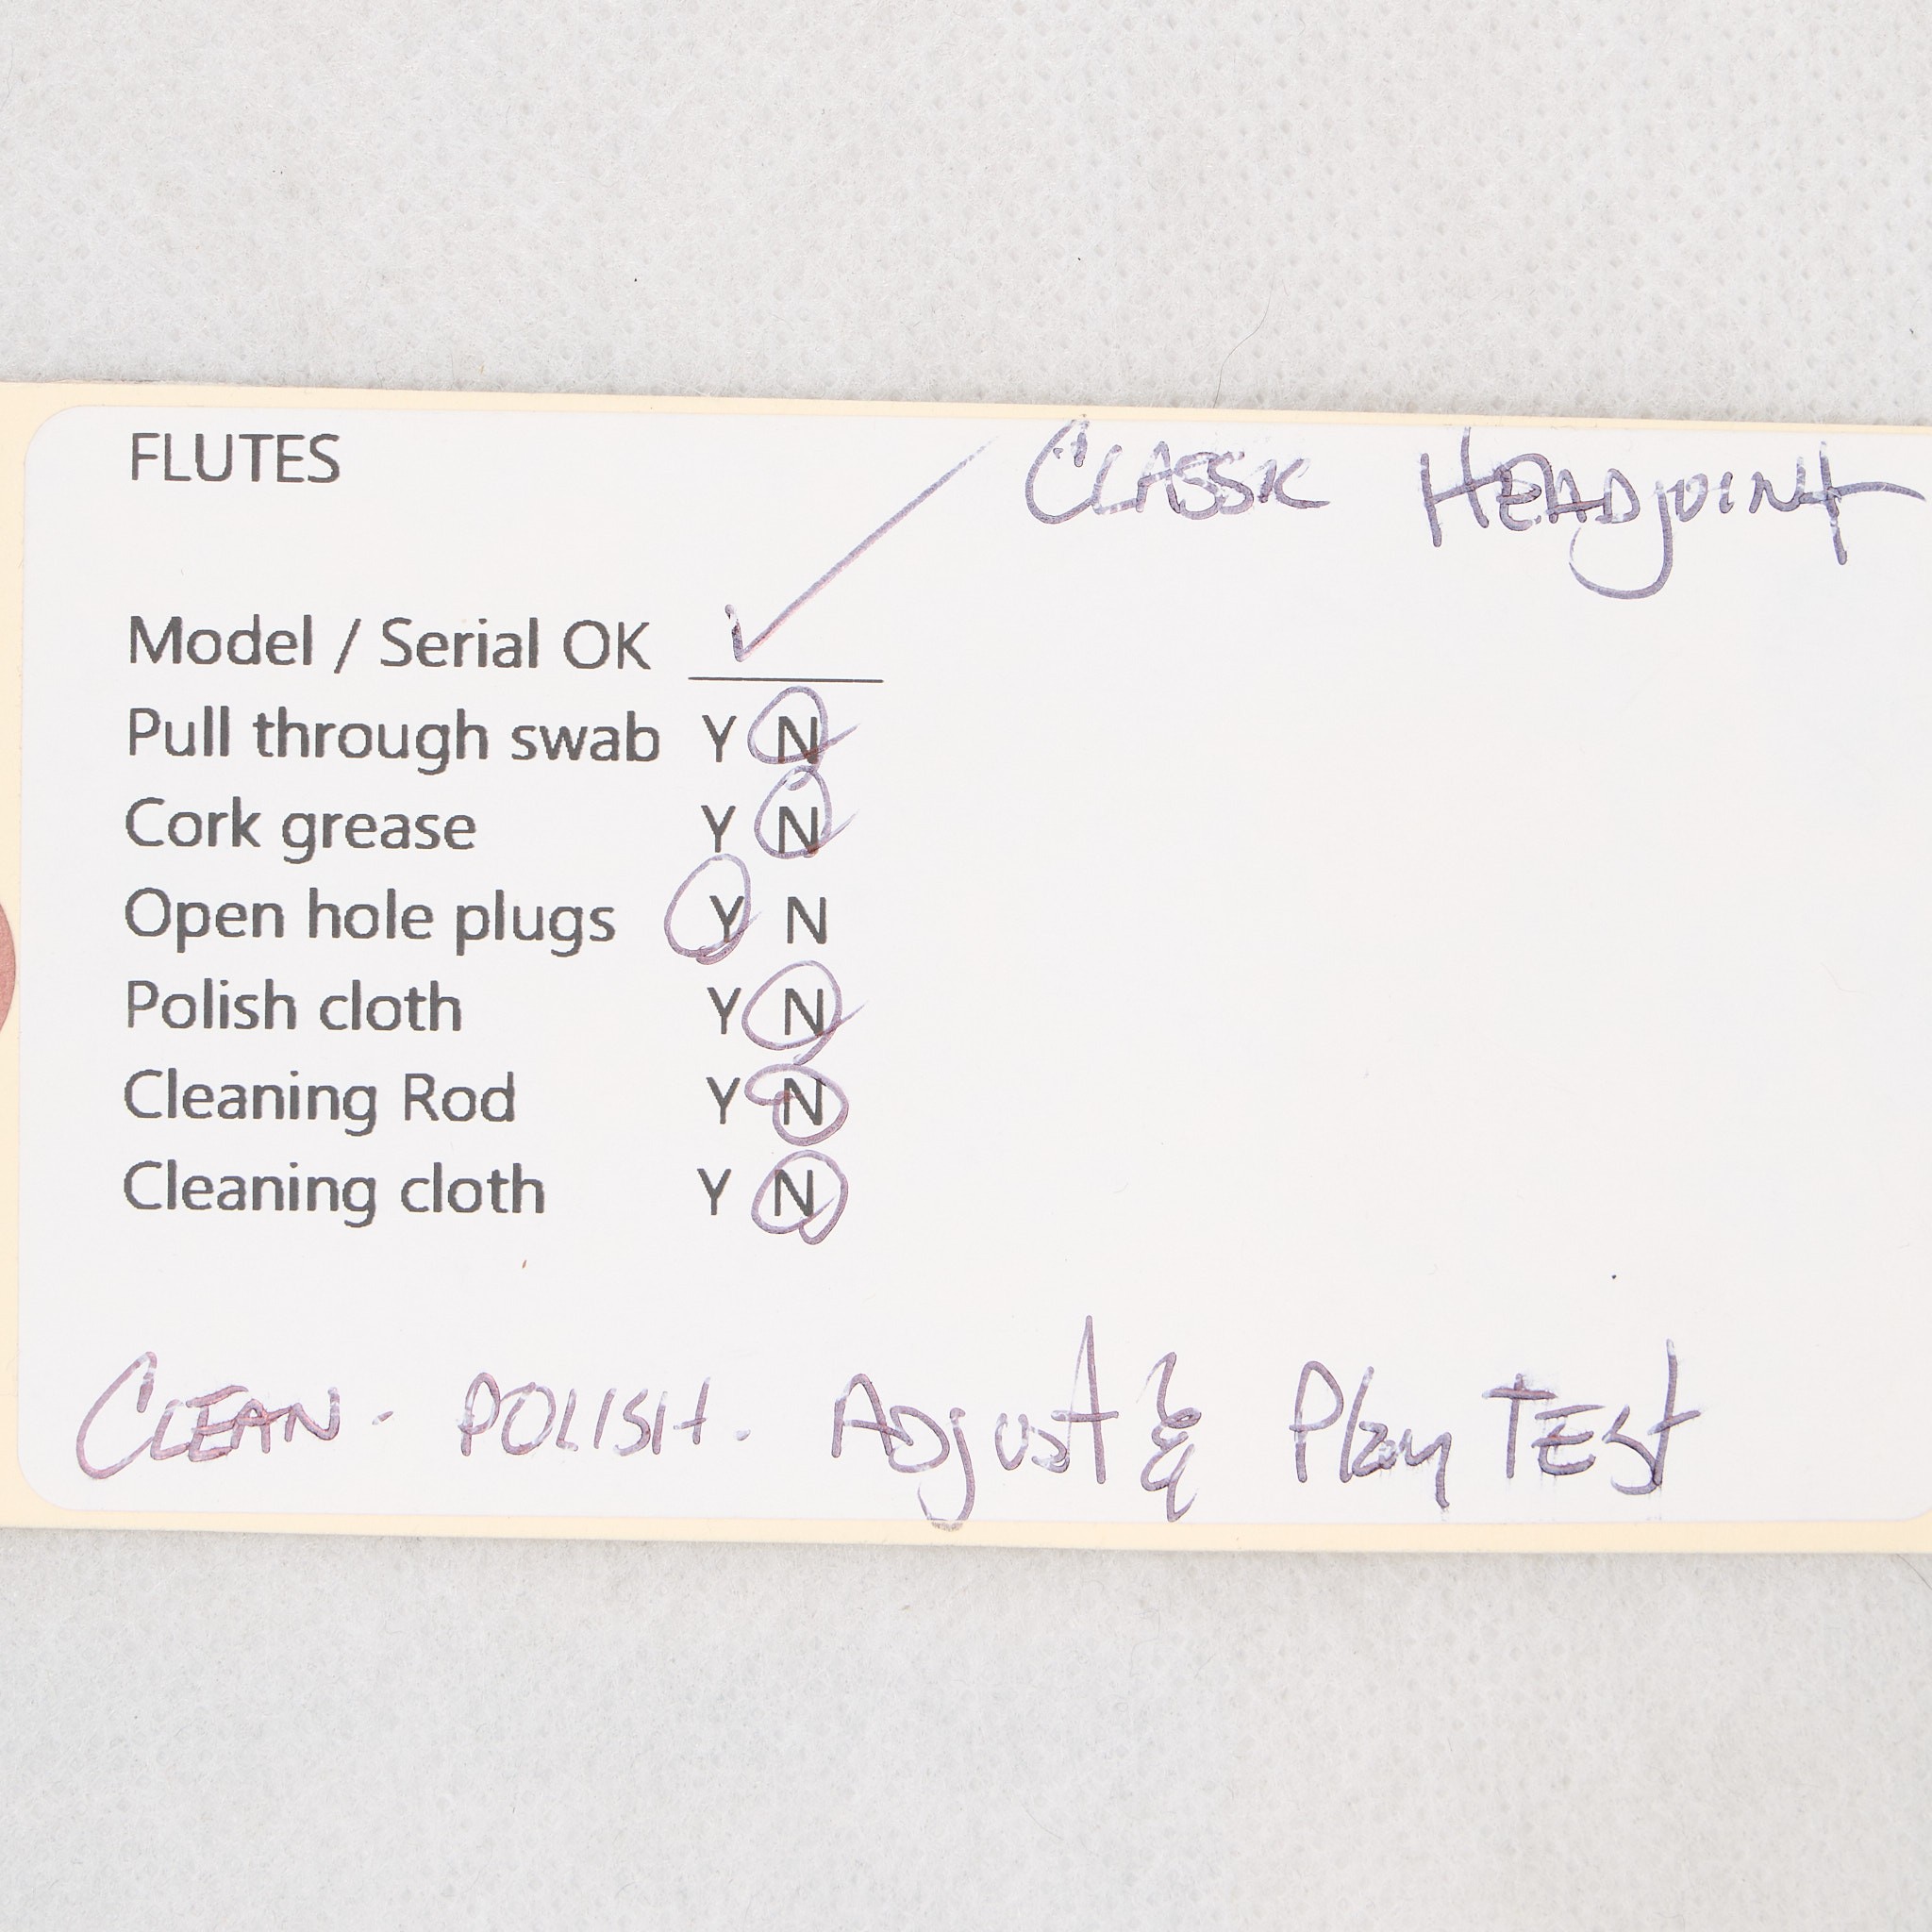 FLUTES
CLASSIC HEADjOINT
Model / Serial OK ✓
Pull through swab Y N
Cork grease Y N
Open hole plugs Y N
Polish cloth Y N
Cleaning Rod Y N
Cleaning cloth Y N
CLEAN - POLISH. ADjust & Play TEST